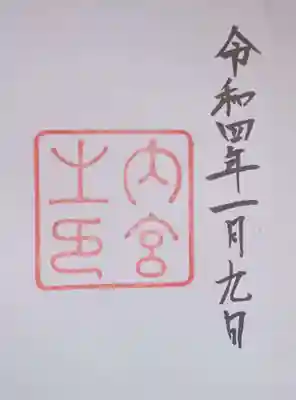 令和四年一月九日
内宮
之印